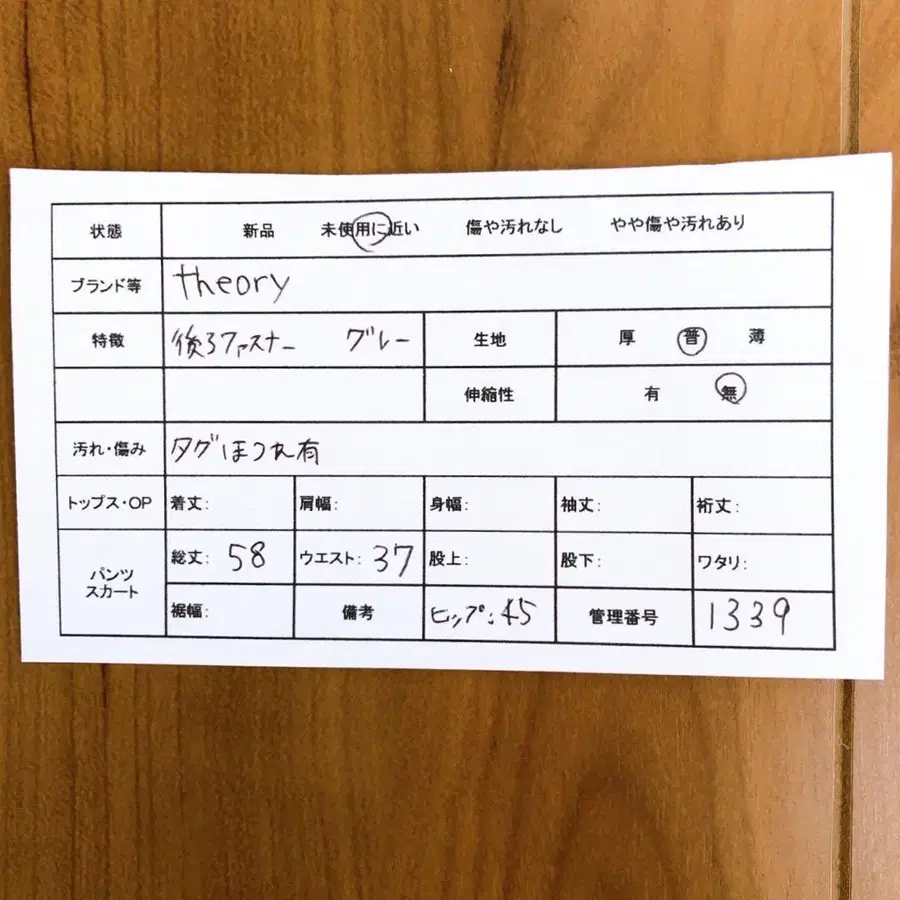 状態 新品 未使用に近い 傷や汚れなし やや傷や汚れあり
ブランド等 theory
特徴 後ろファスナー グレー 生地 厚 普 薄
伸縮性 有 無
汚れ・傷み タグほつれ有
トップス・OP 着丈: 肩幅: 身幅: 袖丈: 裄丈:
パンツ スカート 総丈: 58 ウエスト: 37 股上: 股下: ワタリ:
裾幅: 備考 ヒップ: 45 管理番号 1339